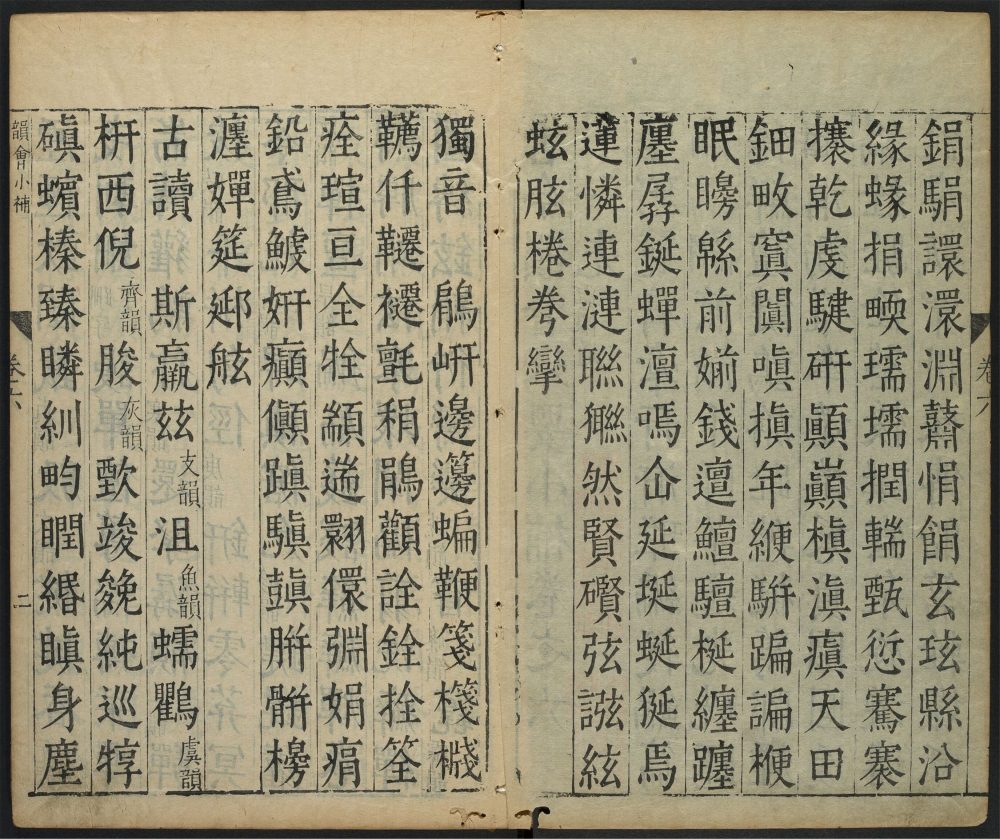 鋗駽譞澴淵鼘悁餶玄玹縣沿
緣蝝捐㬉瓀壖撋輲甄愆騫褰
攓乾虔鍵硏顚巔槙滇瘨天田
鈿畋窴闐嗔搷年緶騈蹁諞楩
眠矊緜前媊錢邅鱣驙梴纏躔
廛孱鋋蟬澶嘕仚延埏蜒狿焉
蓮憐連漣聯㺦然賢礥弦誸絃
蚿胘棬弮攣
卷六
獨音 鵳岍邊籩蝙鞭箋棧櫼
韉仟韆䙴氈稍鵑顴詮銓拴筌
痊瑄亘全牷顓遄翾儇弲娟痟
鉛鳶鯱姸癲儹蹎驥鼘胼骿櫋
瀍嬋筵郔舷
古讀 斯羸玆支韻沮魚韻蠕鸜虞韻
枅西倪齊韻朘灰韻甄竣㕙純巡犉
磌蠙榛臻瞵紃畇瞤緡瞋身塵
韻會小補
卷六
二